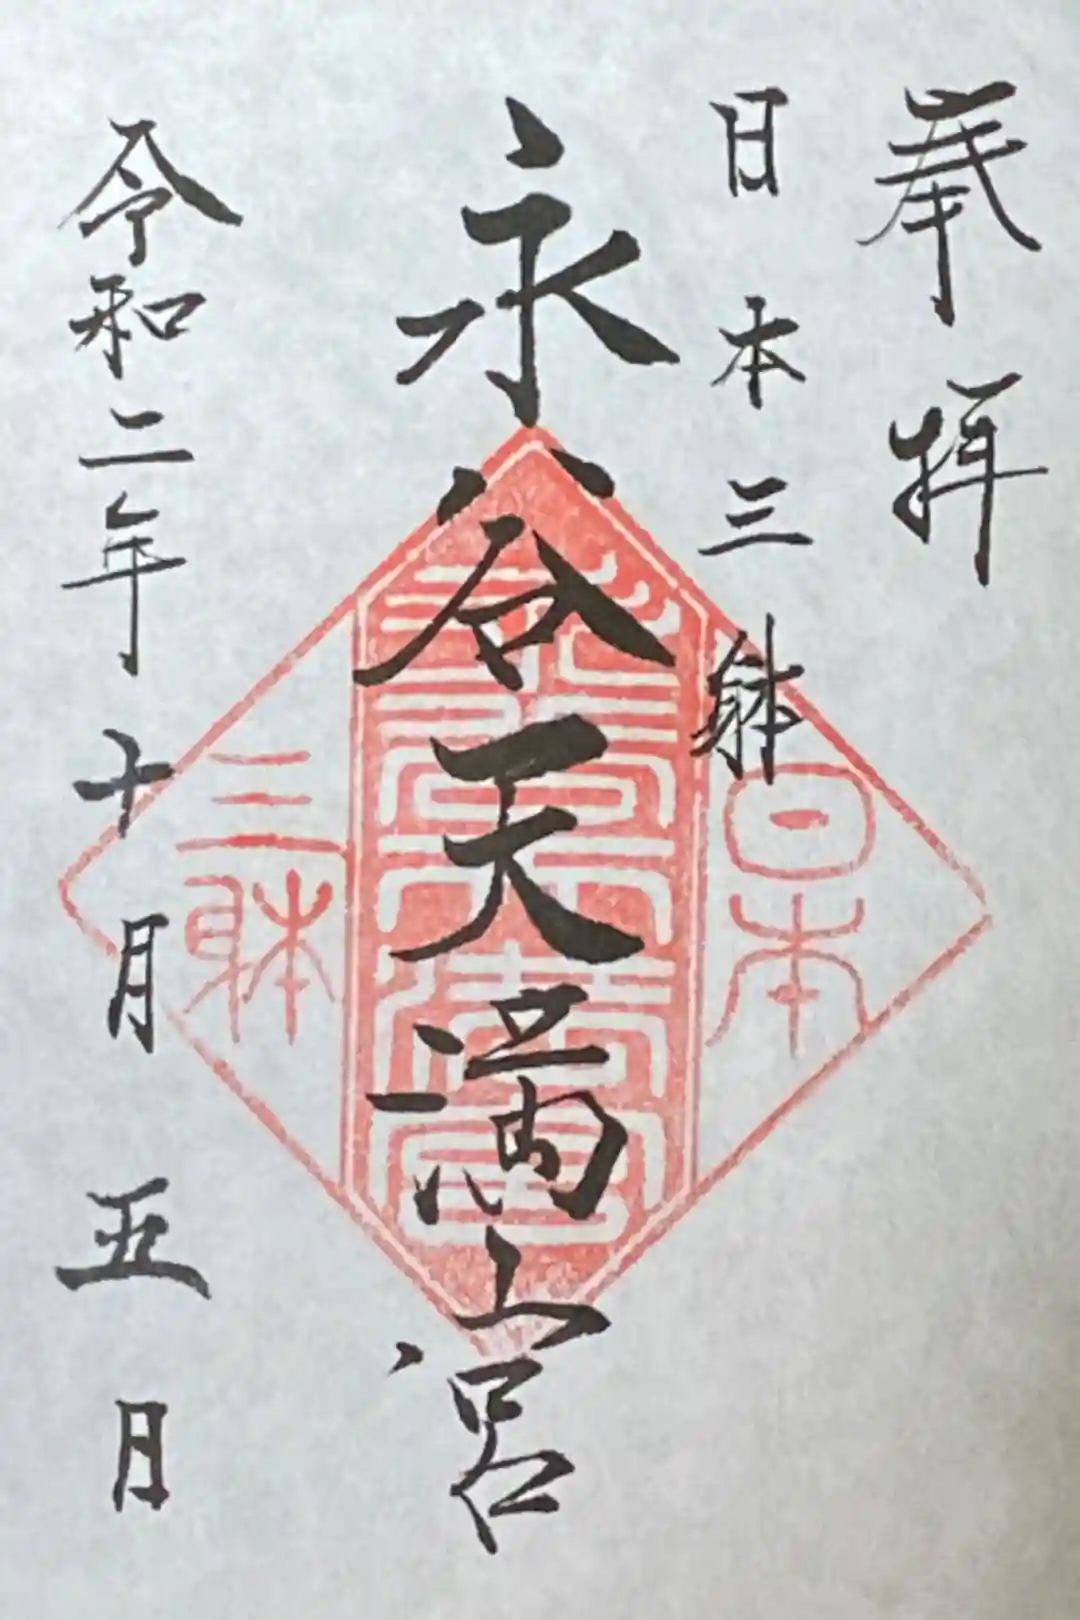 奉拝
日本三躰
永谷天満宮
令和二年十月五日
日本
三躰
永谷天満宮